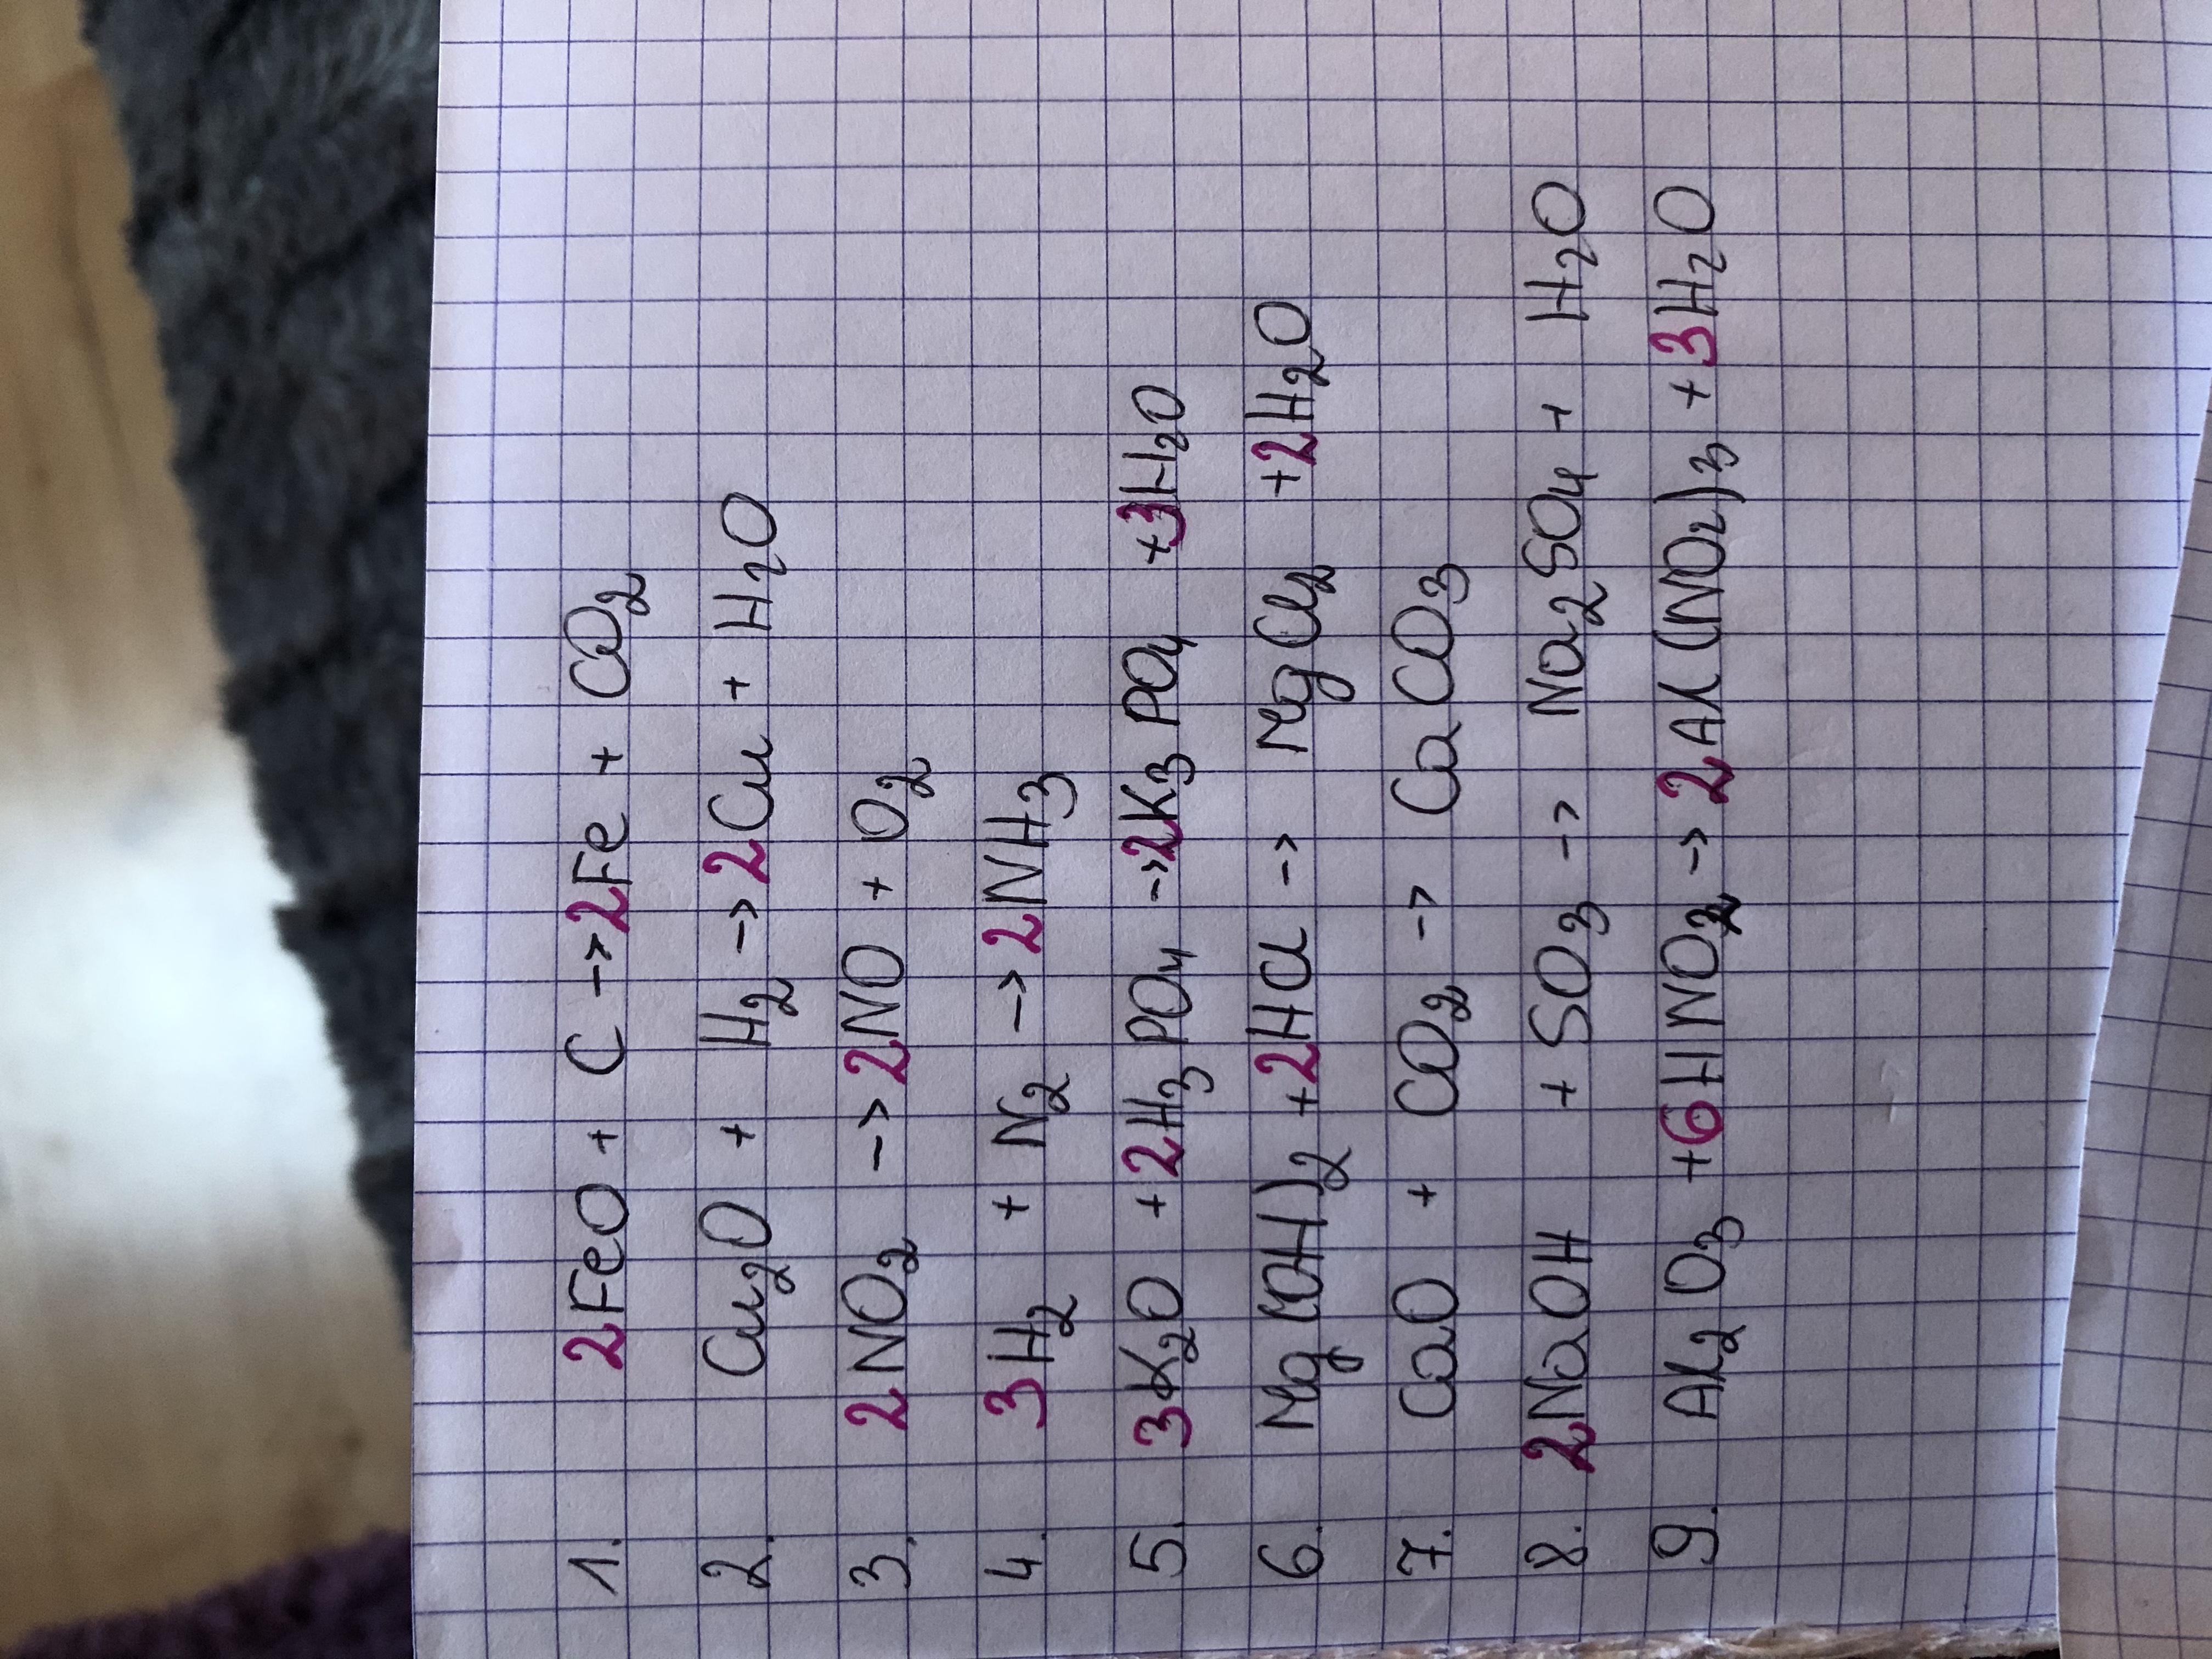 1. 2FeO + C -> 2Fe + CO₂
2. Cu₂O + H₂ -> 2Cu + H₂O
3. 2NO₂ -> 2NO + O₂
4. 3H₂ + N₂ -> 2NH₃
5. 3K₂O + 2H₃PO₄ -> 2K₃PO₄ + 3H₂O
6. Mg(OH)₂ + 2HCl -> MgCl₂ + 2H₂O
7. CaO + CO₂ -> CaCO₃
8. 2NaOH + SO₃ -> Na₂SO₄ + H₂O
9. Al₂O₃ + 6HNO₂ -> 2Al(NO₂)₃ + 3H₂O